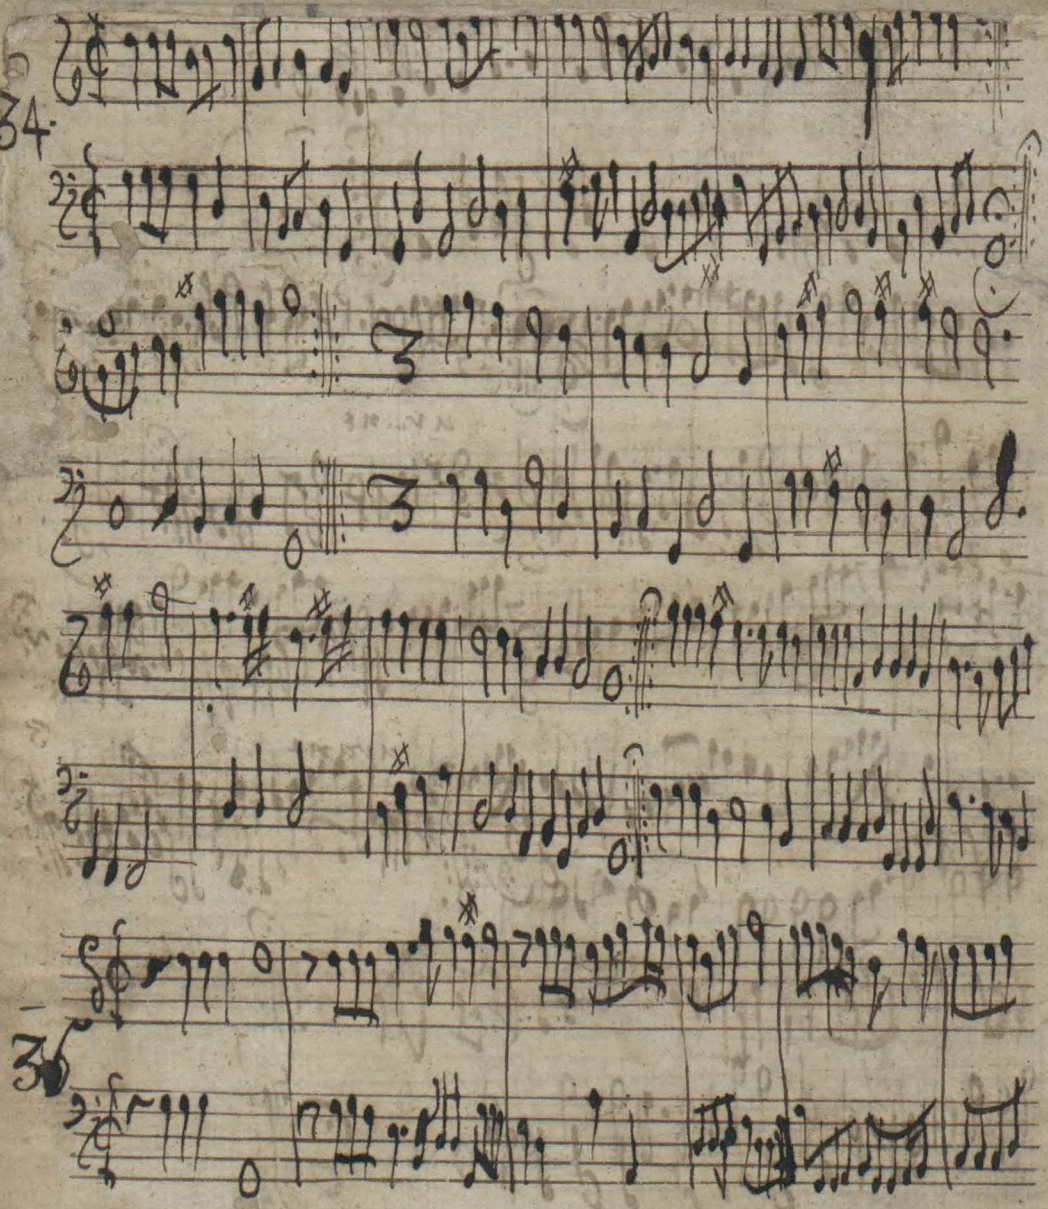 34.
3
3
35